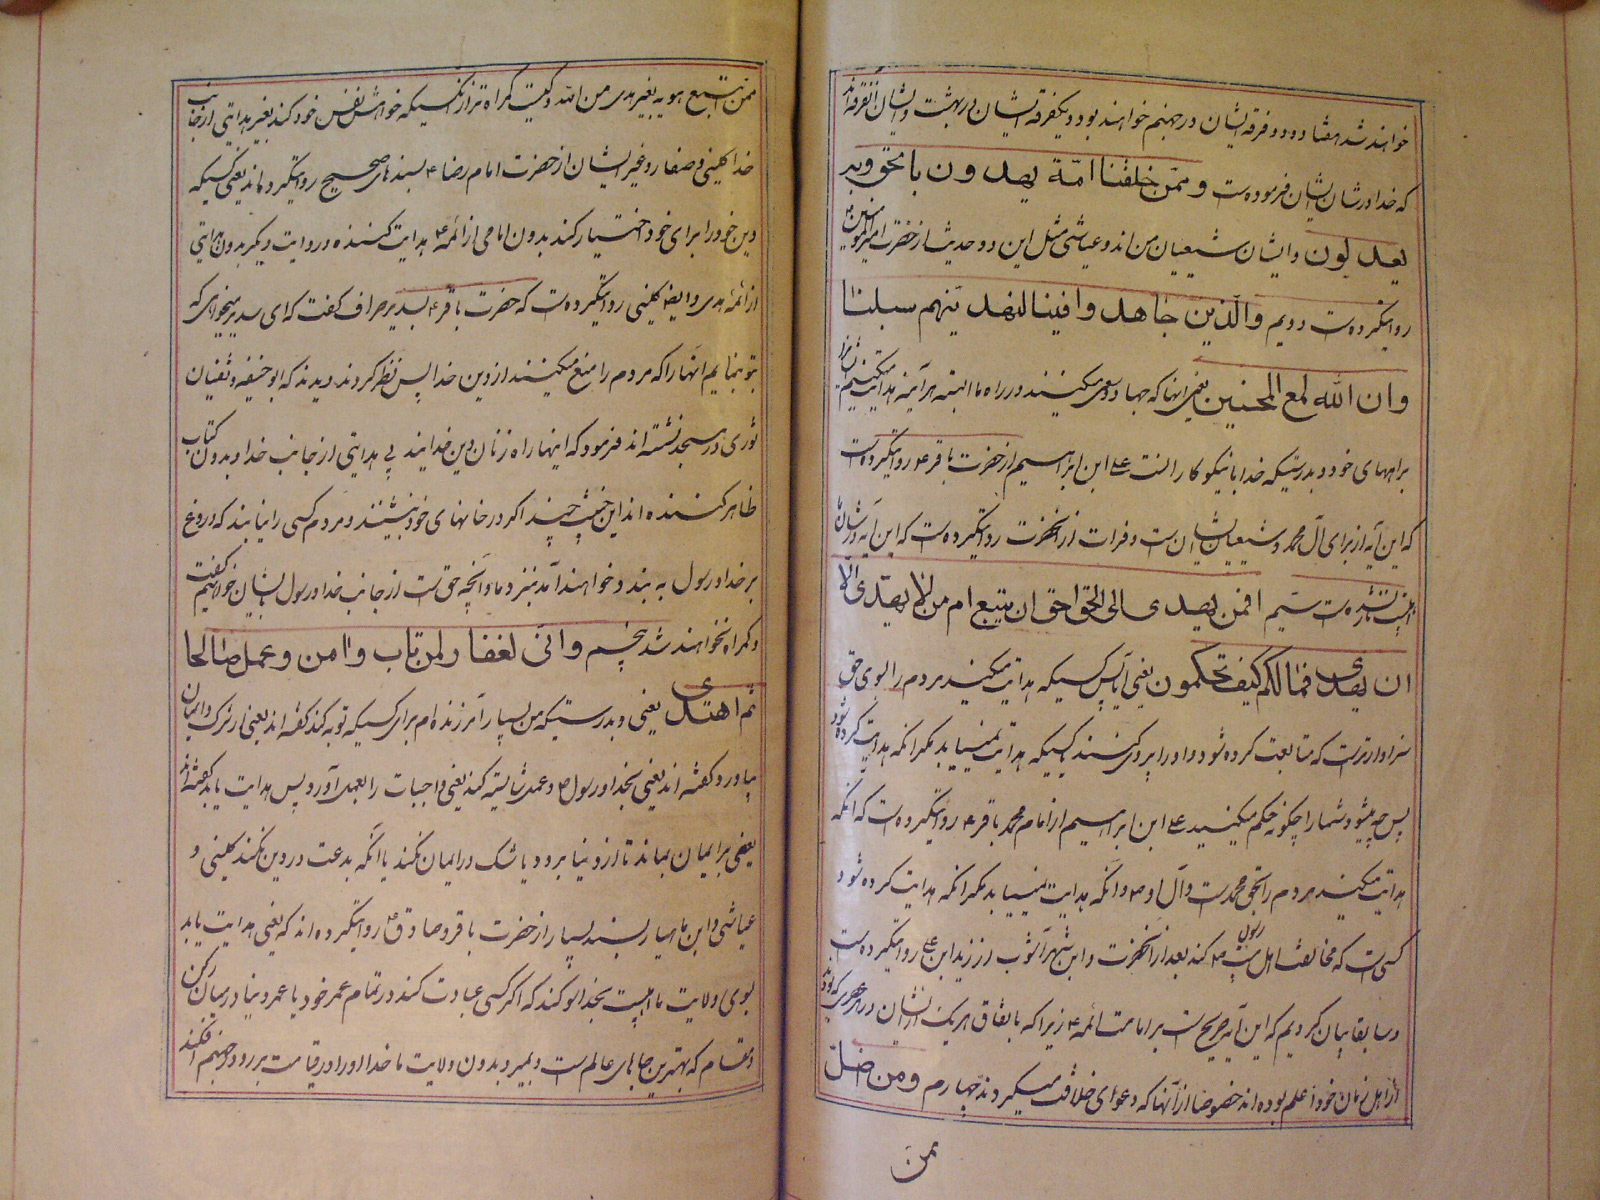 خواهند شد هفتاد و دو فرقه ایشان در جهنم خواهند بود و یکفرقه ایشان در بهشت و ایشان آنفرقه‌اند
که خدا در شان ایشان فرموده است وممّن خلقنا امّة یهدون بالحق وبه
یعدلون و ایشان شیعیان من‌اند و عیاشی مثل این دو حدیث از حضرت امیرالمؤمنین ع
روایتکرده است دویم والّذین جاهدوا فینا لنهدینهم سبلنا
وان الله لمع المحسنین یعنی آنها که جهاد و سعی میکنند در راه ما البته هرآینه هدایت میکنیم ایشانرا
براههای خود و بدرستیکه خدا با نیکوکارانست علی ابن ابراهیم از حضرت باقر ع روایتکرده است
که این آیه از برای آل محمد و شیعیان ایشان است و فرات از آنحضرت روایتکرده است که این آیه در شان ما
اهلبیت نازل شده است سیم افمن یهدی الی الحق احق ان یتبع ام من لا یهدّی الّا
ان یهدی فمالکم کیف تحکمون یعنی آیا پس کسیکه هدایت میکند مردم را بسوی حق
سزاوارترست که متابعت کرده شود و او را پیروی کنند یا کسیکه هدایت نمییابد مگر آنکه هدایت کرده شود
پس چه میشود شما را چگونه حکم میکنید علی ابن ابراهیم از امام محمد باقر ع روایتکرده است که آنکه
هدایت میکند مردم را بحق محمد است و آل او ع و آنکه هدایت نمییابد مگر آنکه هدایت کرده شود
کسی است که مخالفت اهل بیت رسول ص کند بعد از آنحضرت و ابن شهرآشوب از زید ابن علی روایتکرده است
و سابقا بیان کردیم که این آیه صریح است بر امامت ائمه ع زیرا که باتفاق هریک از ایشان در هر عصری که بودند
از اهل زمان خود اعلم بوده‌اند خصوصا از آنها که دعوای خلافت میکردند چهارم ومن اضلّ
ممن
ممن اتبع هویه بغیر هدی من الله و کیست گمراه‌تر از آنکسیکه خواهش نفس خود کند بغیر هدایتی از جانب
خدا کلینی و صفار و غیر ایشان از حضرت امام رضا ع بسندهای صحیح روایتکرده‌اند یعنی کسیکه
دین خود را برای خود اختیار کند بدون امامی از ائمه ع هدایت کننده و در روایت دیگر بدون هدایتی
از ائمه هدی و ایضا کلینی روایتکرده است که حضرت باقر ع بسدیر صراف گفت که ای سدیر میخواهی که
بتو بنمایم آنها را که مردم را منع میکنند از دین خدا پس نظر کردند دیدند که ابوحنیفه و سفیان
ثوری در مسجد نشسته‌اند فرمود که اینها راه زنان دین خدایند بی هدایتی از جانب خدا و بدون کتاب
ظاهر کننده‌اند این خبیثی چند اگر در خانهای خود بنشینند و مردم کسی را نیابند که دروغ
بر خدا و رسول به بندد خواهند آمد بنزد ما و آنچه حق است از جانب خدا و رسول بایشان خواهیم گفت
و گمراه نخواهند شد پنجم وانّی لغفار لمن تاب واامن وعمل صالحا
ثم اهتدی یعنی و بدرستیکه من بسیار آمرزنده‌ام برای کسیکه توبه کند گفته‌اند یعنی از شرک و ایمان
بیاورد و گفته‌اند یعنی بخدا و رسول ص و عمل شایسته کند یعنی واجبات را بعمل آورد پس هدایت یابد گفته‌اند
یعنی بر ایمان بماند تا از دنیا برود یا شک در ایمان نکند یا آنکه بدعت در دین نکند کلینی و
عیاشی و ابن ماهیار بسند بسیار از حضرت باقر و صادق ع روایتکرده‌اند که یعنی هدایت یابد
بسوی ولایت ما اهلبیت بخدا سوگند که اگر کسی عبادت کند در تمام عمر خود یا عمر دنیا در میان رکن
و مقام که بهترین جاهای عالم است و بمیرد بدون ولایت ما خدا او را در قیامت بر رو در جهنم افکند